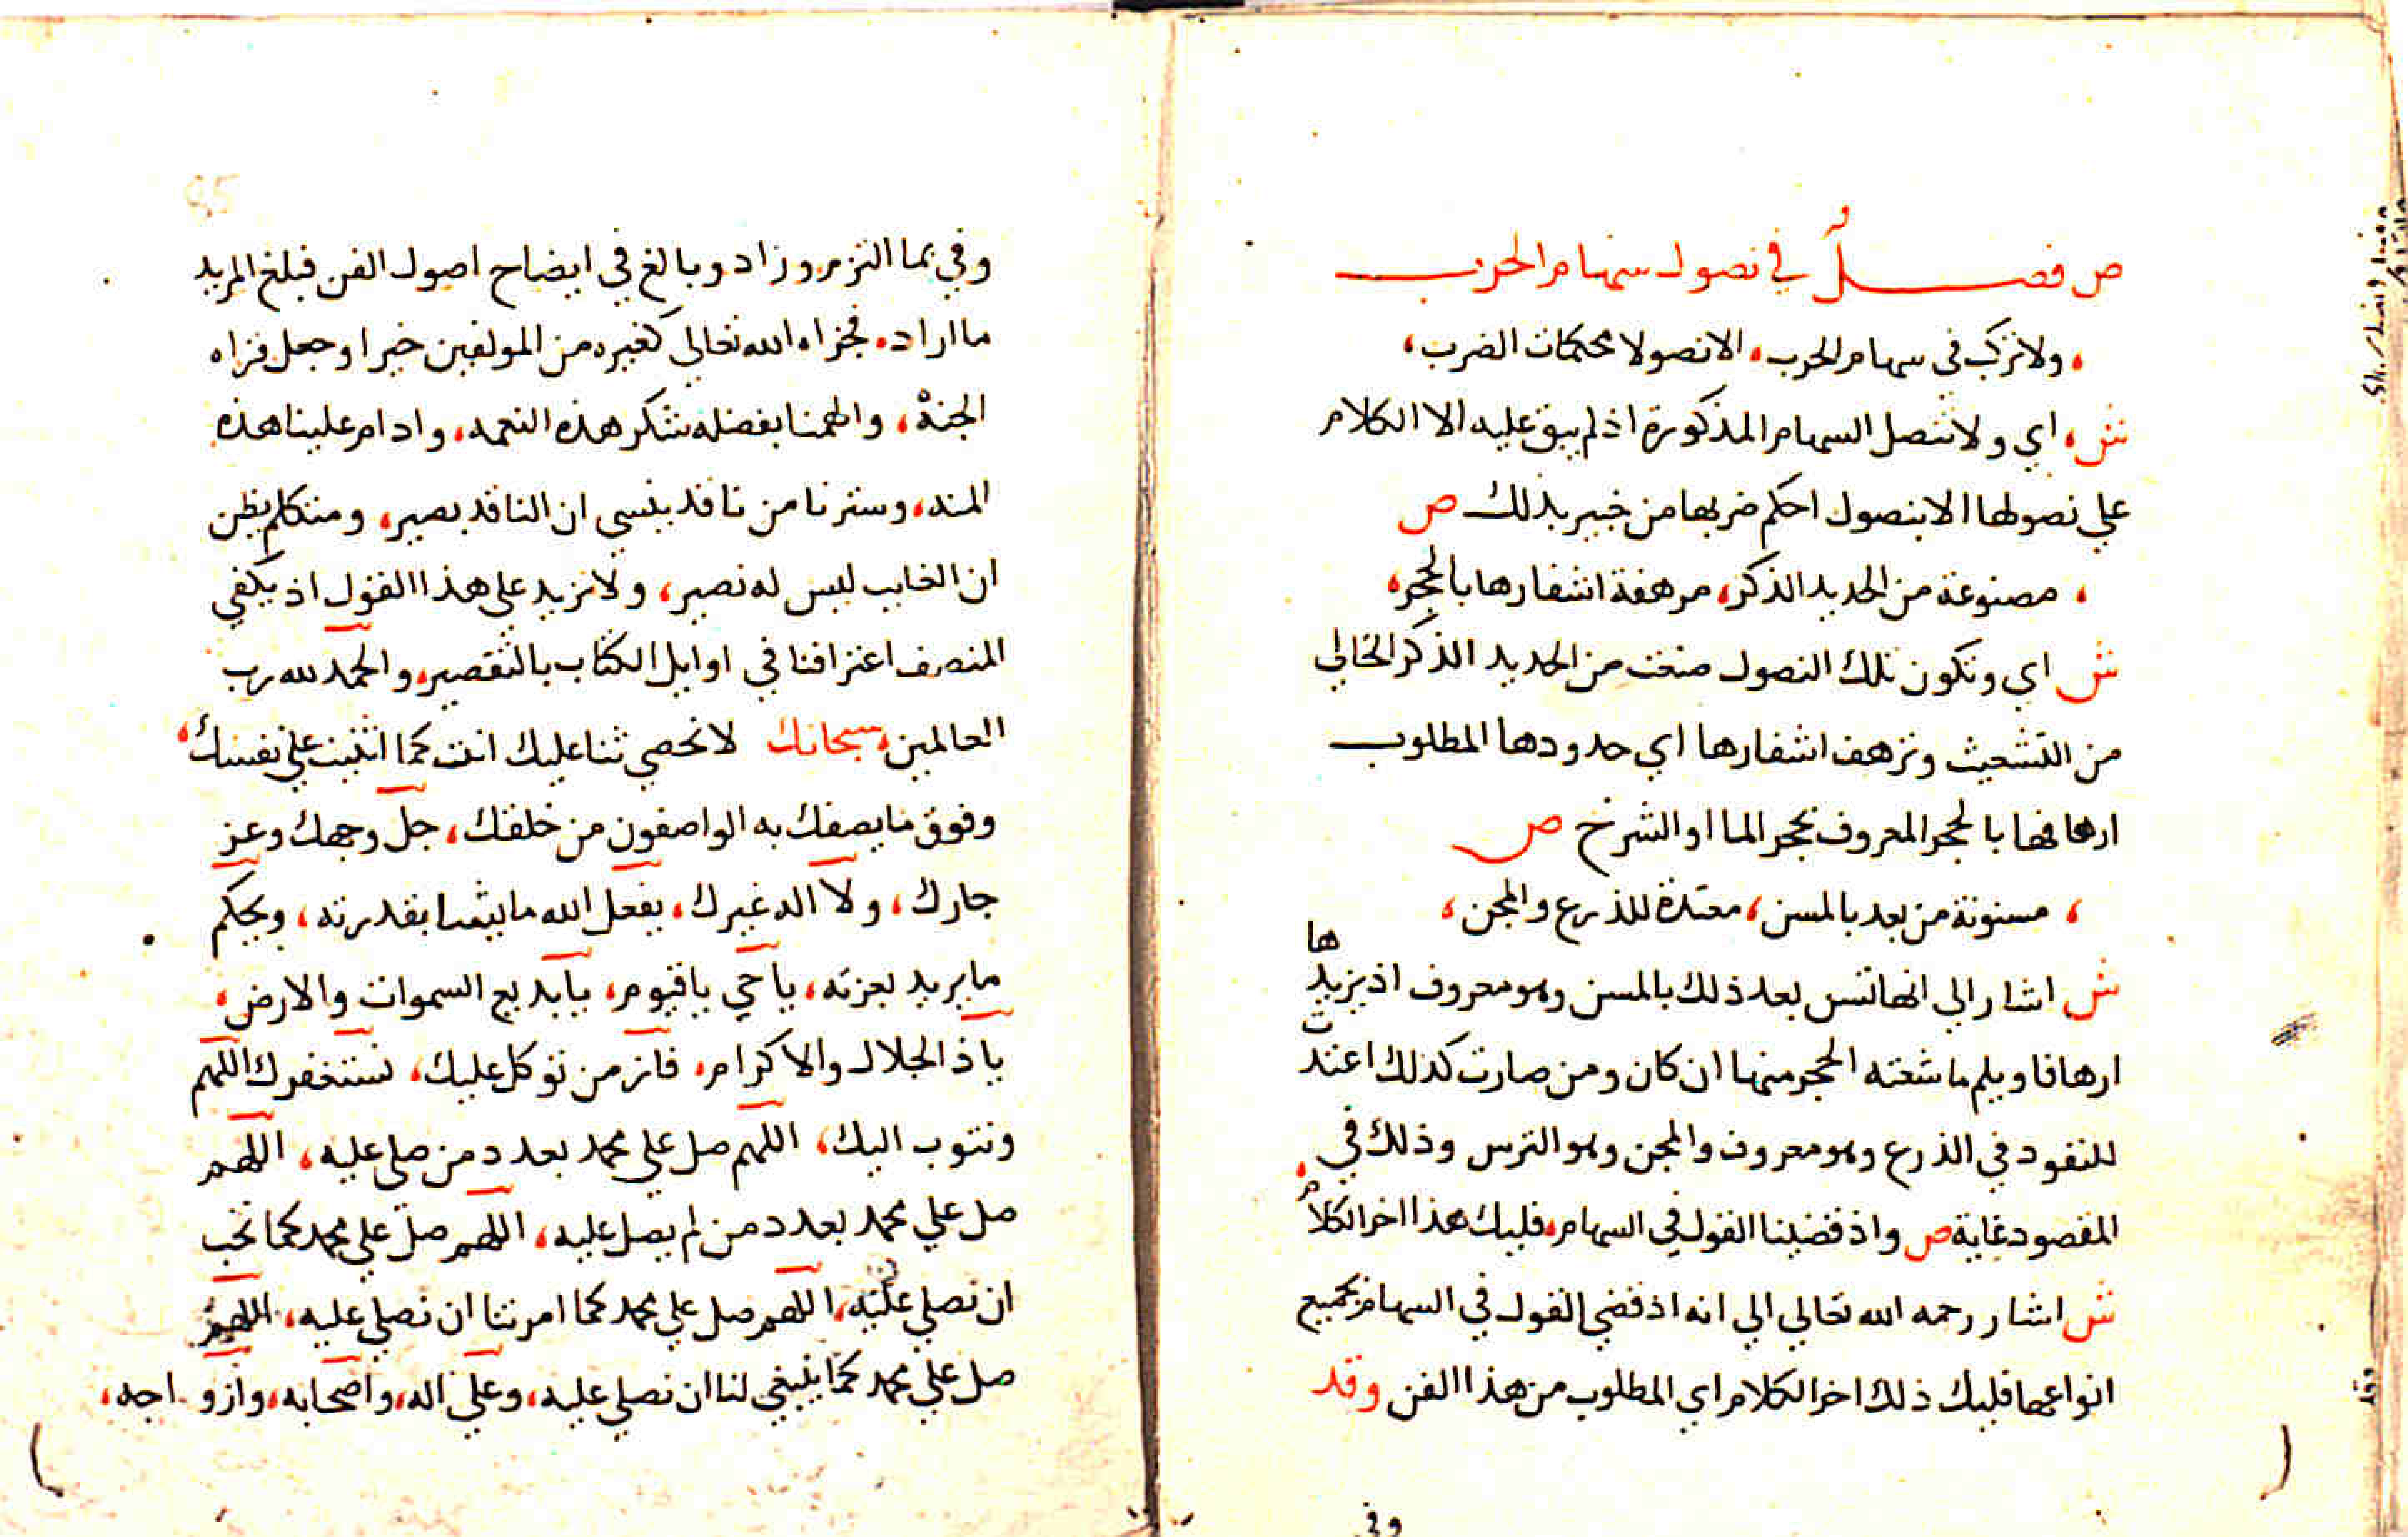 ص فصلٌ في نصول سهام الحرب
، ولا تركب في سهام الحرب، الا نصولا محكمات الضرب،
ش، اي ولا تنصل السهام المذكورة اذ لم يبق عليه الا الكلام
علي نصولها الا بنصول احكم ضربها من خبير بذلك ص
، مصنوعة من الحديد الذكر، مرهفة اشفارها بالحجر،
ش اي وتكون تلك النصول صنعت من الحديد الذكر الخالي
من التشعيث وترهف اشفارها اي حدودها المطلوب
ارهافها بالحجر المعروف بحجر الما او الشرخ ص
، مسنونة من بعد بالمسن، معتدة للذرع والمجن،
ش اشار الي انها تسن بعد ذلك بالمسن وهو معروف اذ يزيدها
ارهافا ويلم ما شعته الحجر منها ان كان ومن صارت كذلك اعتدت
للنفود في الذرع وهو معروف والمجن وهو الترس وذلك في
المقصود غاية ص واذ قضينا القول في السهام، فليك هذا اخر الكلام
ش اشار رحمه الله تعالي الي انه اذ قضي القول في السهام بجميع
انواعها فليك ذلك اخر الكلام اي المطلوب من هذا الفن وقد
وفي
وفي بما التزم وزاد وبالغ في ايضاح اصول الفن فبلغ المريد
ما اراد، فجزاه الله تعالي كغيره من المولفين خيرا وجعل قراه
الجنة، والهمنا بفضله شكر هذه النعمه، وادام علينا هذه
المنه، وسترنا من ناقد ينسي ان الناقد بصير، ومتكلم يظن
ان الغايب ليس له نصير، ولا نزيد علي هذا القول اذ يكفي
المنصف اعترافنا في اوايل الكتاب بالتقصير، والحمد لله رب
العالمين، سبحانك لا نحصي ثنا عليك انت كما اثنيت علي نفسك،
وفوق ما يصفك به الواصفون من خلقك، جل وجهك وعز
جارك، ولا اله غيرك، يفعل الله ما يشا بقدرته، ويحكم
ما يريد بعزته، يا حي يا قيوم، يا بديع السموات والارض،
يا ذا الجلال والاكرام، فاز من توكل عليك، نستغفرك اللهم
ونتوب اليك، اللهم صل علي محمد بعدد من صلي عليه، اللهم
صل علي محمد بعدد من لم يصل عليه، اللهم صل علي محمد كما تحب
ان نصلي عليه، اللهم صل علي محمد كما امرتنا ان نصلي عليه، اللهم
صل علي محمد كما ينبغي لنا ان نصلي عليه، وعلي اله، واصحابه، وازواجه،